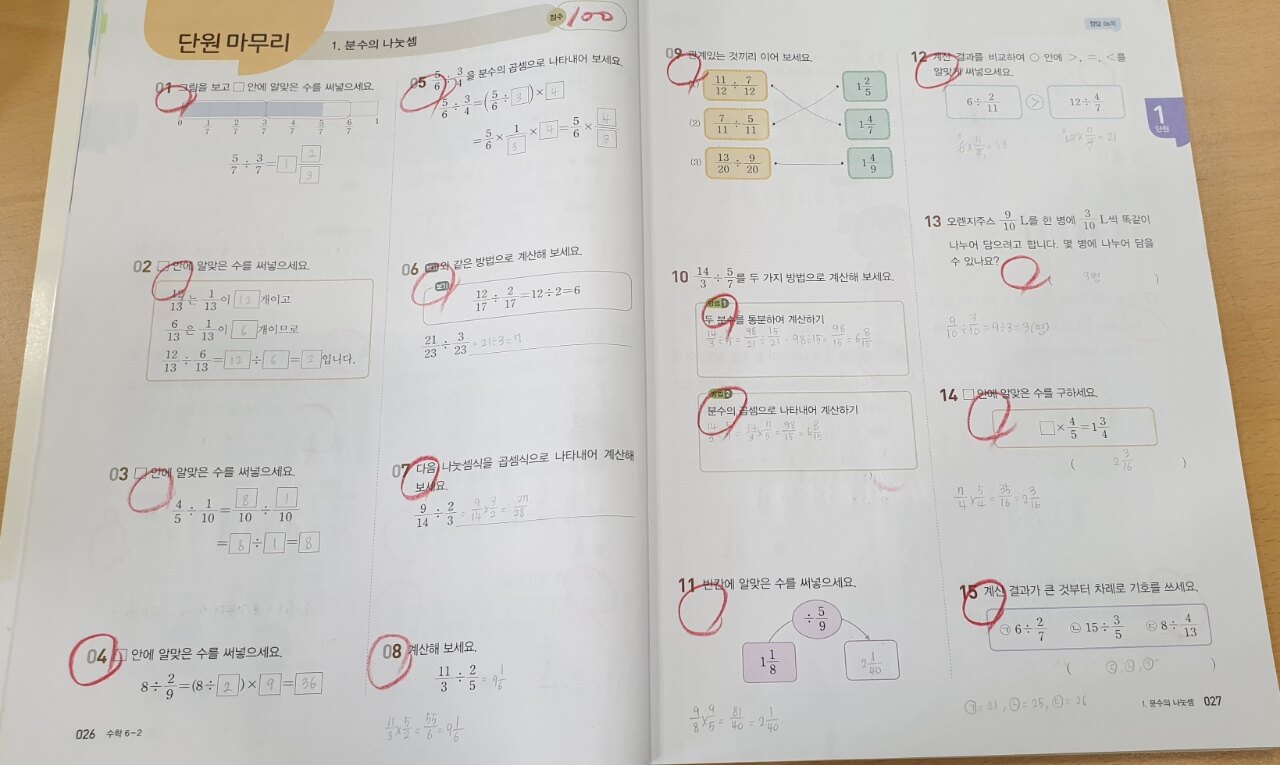 단원 마무리
1. 분수의 나눗셈
점수 100
01 그림을 보고 □ 안에 알맞은 수를 써넣으세요.
0 1/7 2/7 3/7 4/7 5/7 6/7 1
5/7 ÷ 3/7 = 1 2/3
02 □ 안에 알맞은 수를 써넣으세요.
12/13는 1/13이 12 개이고
6/13은 1/13이 6 개이므로
12/13 ÷ 6/13 = 12 ÷ 6 = 2 입니다.
03 □ 안에 알맞은 수를 써넣으세요.
4/5 ÷ 1/10 = 8/10 ÷ 1/10
= 8 ÷ 1 = 8
04 □ 안에 알맞은 수를 써넣으세요.
8 ÷ 2/9 = (8 ÷ 2) × 9 = 36
026 수학 6-2
05 5/6 ÷ 3/4 을 분수의 곱셈으로 나타내어 보세요.
5/6 ÷ 3/4 = (5/6 ÷ 3) × 4
= 5/6 × 1/3 × 4 = 5/6 × 4/3
06 보기와 같은 방법으로 계산해 보세요.
보기
12/17 ÷ 2/17 = 12 ÷ 2 = 6
21/23 ÷ 3/23 = 21÷3 = 7
07 다음 나눗셈식을 곱셈식으로 나타내어 계산해
보세요.
9/14 ÷ 2/3 = 9/14 × 3/2 = 27/28
08 계산해 보세요.
11/3 ÷ 2/5 = 9 1/6
11/3 × 5/2 = 55/6 = 9 1/6
09 관계있는 것끼리 이어 보세요.
(1) 11/12 ÷ 7/12 1 2/5
(2) 7/11 ÷ 5/11 1 4/7
(3) 13/20 ÷ 9/20 1 4/9
10 14/3 ÷ 5/7 를 두 가지 방법으로 계산해 보세요.
방법 1
두 분수를 통분하여 계산하기
14/3 ÷ 5/7 = 98/21 ÷ 15/21 = 98÷15 = 98/15 = 6 8/15
방법 2
분수의 곱셈으로 나타내어 계산하기
14/3 ÷ 5/7 = 14/3 × 7/5 = 98/15 = 6 8/15
11 빈칸에 알맞은 수를 써넣으세요.
÷ 5/9
1 1/8 2 1/40
9/8 × 9/5 = 81/40 = 2 1/40
정답 06쪽
12 계산 결과를 비교하여 ○ 안에 >, =, <를
알맞게 써넣으세요.
6 ÷ 2/11 > 12 ÷ 4/7
6 × 11/2 = 33 12 × 7/4 = 21
1
단원
13 오렌지주스 9/10 L를 한 병에 3/10 L씩 똑같이
나누어 담으려고 합니다. 몇 병에 나누어 담을
수 있나요?
( 3병 )
9/10 ÷ 3/10 = 9÷3 = 3(병)
14 □ 안에 알맞은 수를 구하세요.
□ × 4/5 = 1 3/4
( 2 3/16 )
7/4 × 5/4 = 35/16 = 2 3/16
15 계산 결과가 큰 것부터 차례로 기호를 쓰세요.
㉠ 6 ÷ 2/7 ㉡ 15 ÷ 3/5 ㉢ 8 ÷ 4/13
( ㉢, ㉡, ㉠ )
㉠ = 21, ㉡ = 25, ㉢ = 26
1. 분수의 나눗셈 027